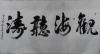 觀海聽濤